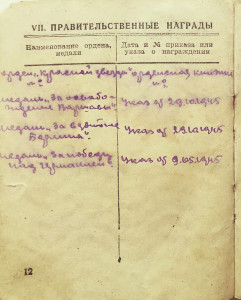 VII. ПРАВИТЕЛЬСТВЕННЫЕ НАГРАДЫ
Наименование ордена, медали
Дата и № приказа или указа о награждении
орден „Красной звезды" орденская книжка
№?
№?
медаль „За освобо-
ждение Варшавы" указ от 29.10.1945
медаль „За взятие
Берлина". указ от 29.10.1945
медаль „За победу
над Германией" указ от 9.05.1945
12